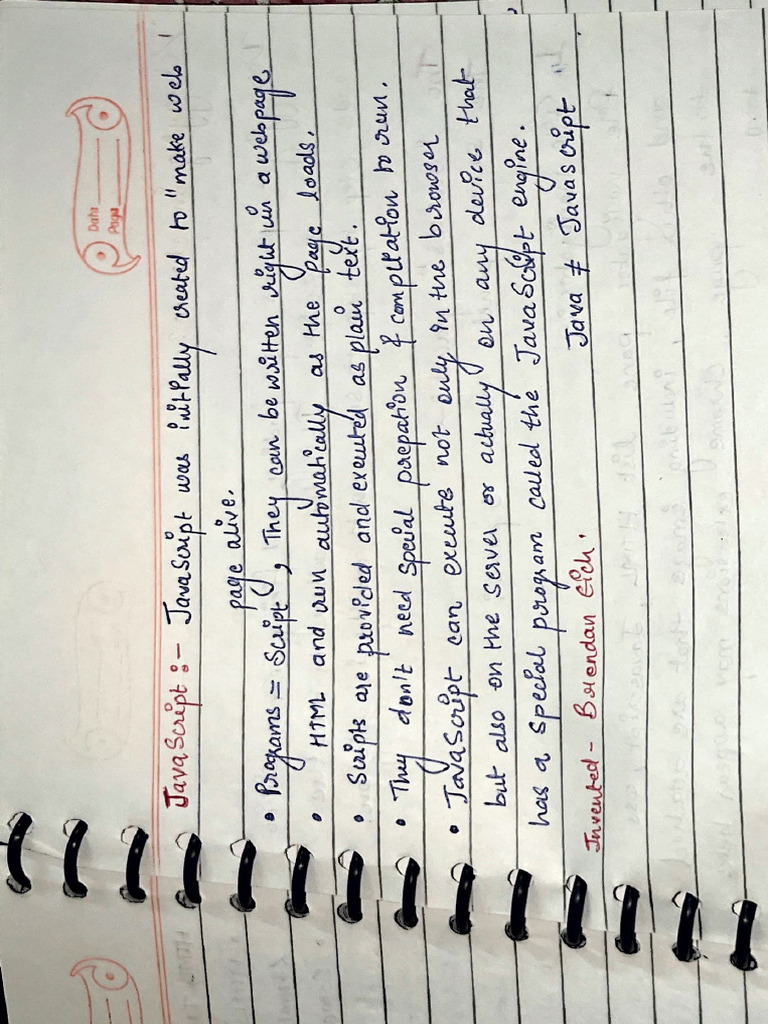 Date
Page
JavaScript :- JavaScript was initially created to "make web
page alive.
• Programs = Script, They can be written right in a webpage
• HTML and run automatically as the page loads.
• Scripts are provided and executed as plain text.
• They don't need special prepation & compilation to run.
• JavaScript can execute not only in the browser
but also on the server or actually on any device that
has a special program called the JavaScript engine.
Invented - Brendan Eich. Java ≠ Javascript